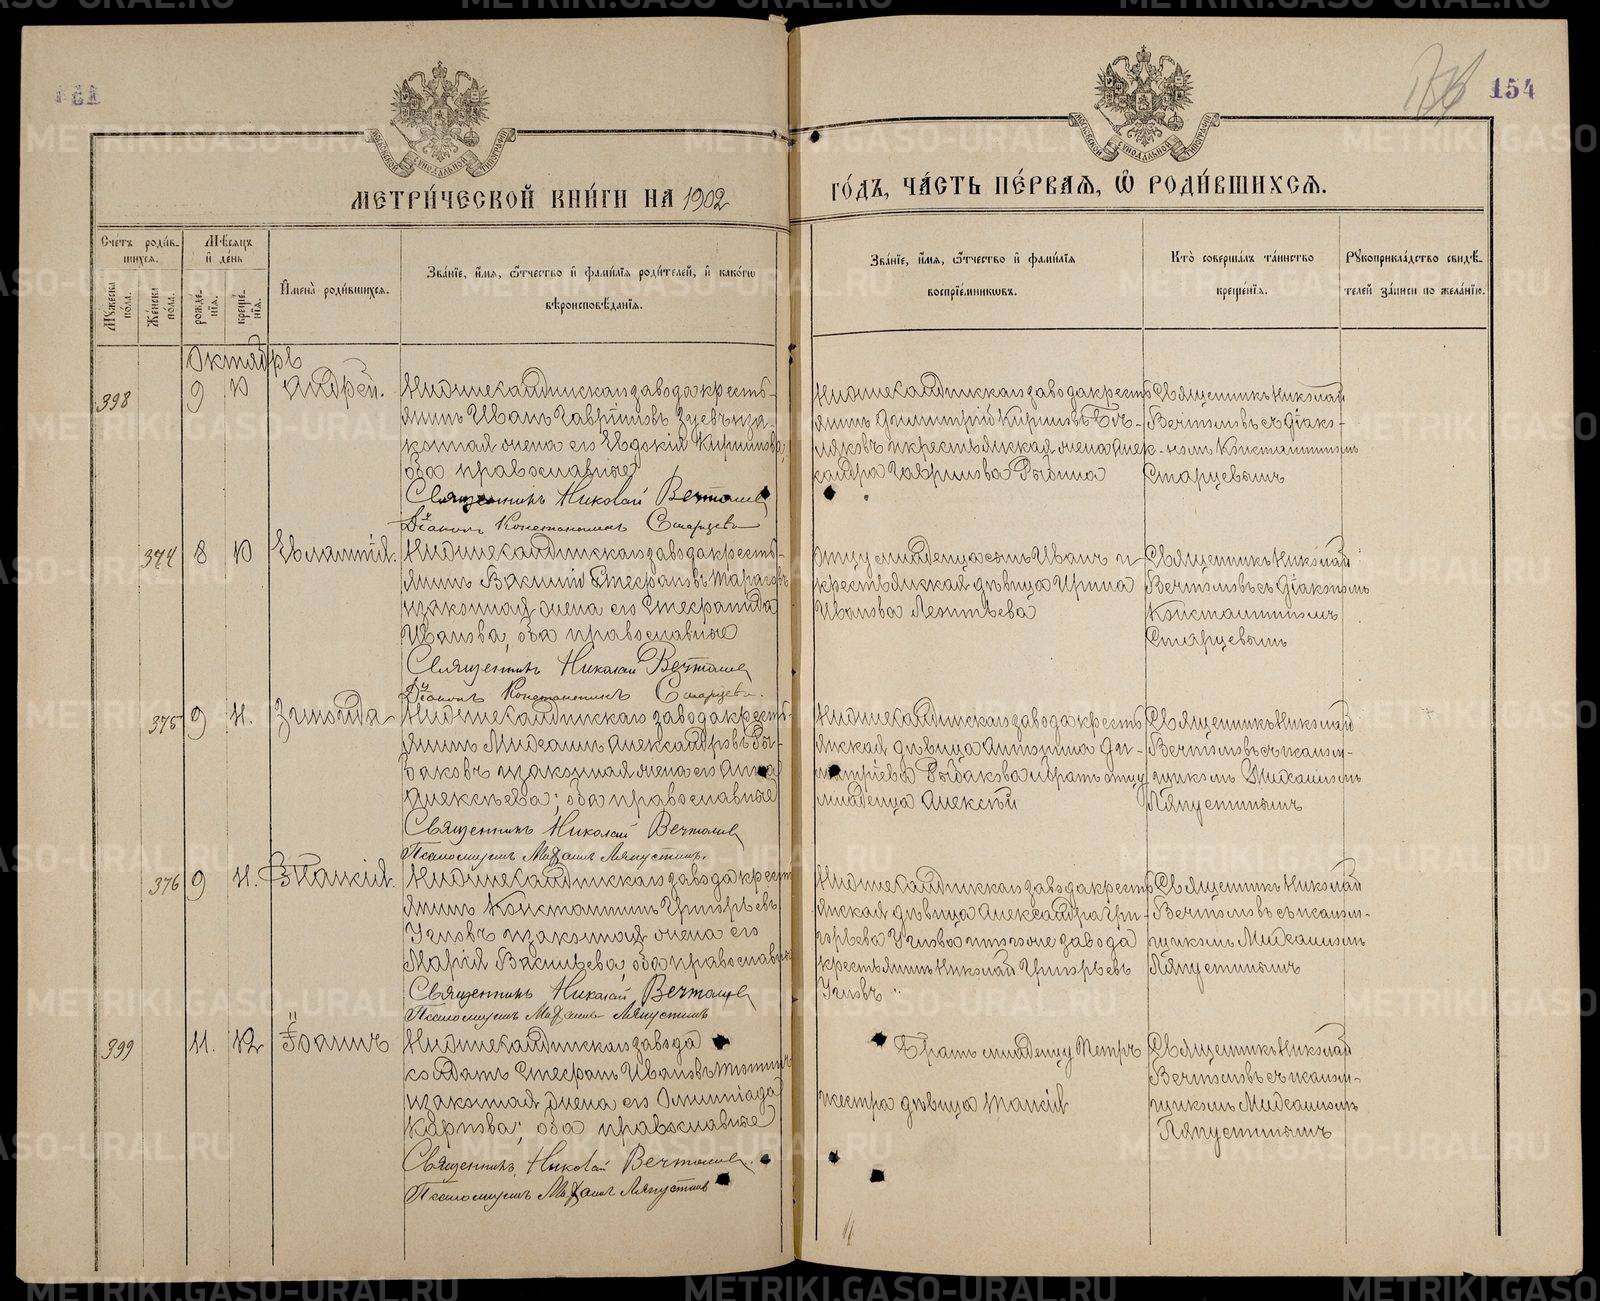 154
МОСКОВСКОЙ СѴНОДАЛЬНОЙ ТИПОГРАФІИ
МОСКОВСКОЙ СѴНОДАЛЬНОЙ ТИПОГРАФІИ
МЕТРИ́ЧЕСКОЙ КНИ́ГИ НА 1902
ГО́ДЪ, ЧА́СТЬ ПЕ́РВАЯ, Ѡ РОДИ́ВШИХСЯ.
Сче́тъ роди́в-
шихся.
Мѣсяцъ
и день
Му́жеска по́ла.
Же́нска пола.
рожде́-
нїя.
креще́-
нїя.
Имена̀ роди́вшихся.
Зва́нїе, и́мя, ѻ́тчество и фами́лїя роди́телей, и како́гѡ
вѣроисповѣ́данїя.
Зва́нїе, и́мя, ѻ́тчество и фами́лїя
воспрїе́мниковъ.
Кто̀ соверша́лъ та́инство
креще́нїя.
Рукоприкла́дство свидѣ́-
телей за́писи по жела́нїю.
Октябрь
398
9
10
Андрей.
Нижнесалдинскаго завода кресть-
янинъ Иванъ Гавриловъ Зуевъ и за-
конная жена его Евдокія Кирилова,
оба православные
Священникъ Николай
Діаконъ Константинъ Старцевъ
Нижнесалдинскаго завода кресть
янинъ Димитрій Кириловъ
и крестьянская жена Алек-
сандра Гаврилова
Священникъ Николай
съ діако-
номъ Константиномъ
Старцевымъ
374
8
10
Евлампія.
Нижнесалдинскаго завода кресть-
янинъ Василій Стефановъ
и законная жена его Стефанида
Иванова, оба православные
Священникъ Николай
Діаконъ Константинъ Старцевъ.
Отцу младенца сынъ Иванъ и
крестьянская дѣвица Ирина
Иванова Леонтьева
Священникъ Николай
съ діакономъ
Константиномъ
Старцевымъ
375
9
11.
Зинаида
Нижнесалдинскаго завода кресть-
янинъ Михаилъ Александровъ Ры-
баковъ и законная жена его Анна
Алексѣева; оба православные
Священникъ Николай
Псаломщикъ Михаилъ Ляпустинъ.
Нижнесалдинскаго завода кресть
янская дѣвица Антонина Ди-
митріева Рыбакова и братъ отцу
младенца Алексѣй
Священникъ Николай
съ псалом-
щикомъ Михаиломъ
Ляпустинымъ
376
9
11.
Нижнесалдинскаго завода крест
янинъ Константинъ Григорьевъ
и законная жена его
Марія Васильева, оба православные
Священникъ Николай
Псаломщикъ Михаилъ Ляпустинъ
Нижнесалдинскаго завода кресть
янская дѣвица Александра Гри-
горьева и того же завода
крестьянинъ Николай Григорьевъ
Священникъ Николай
съ псалом-
щикомъ Михаиломъ
Ляпустинымъ
399
11.
12
Іоаннъ
Нижнесалдинскаго завода
солдатъ Стефанъ Ивановъ
и законная жена его Олимпіада
Карпова; оба православные
Священникъ Николай
Псаломщикъ Михаилъ Ляпустинъ
Братъ младенцу Петръ
и сестра дѣвица Таисія
Священникъ Николай
съ псалом-
щикомъ Михаиломъ
Ляпустинымъ
METRIKI.GASO-URAL.RU